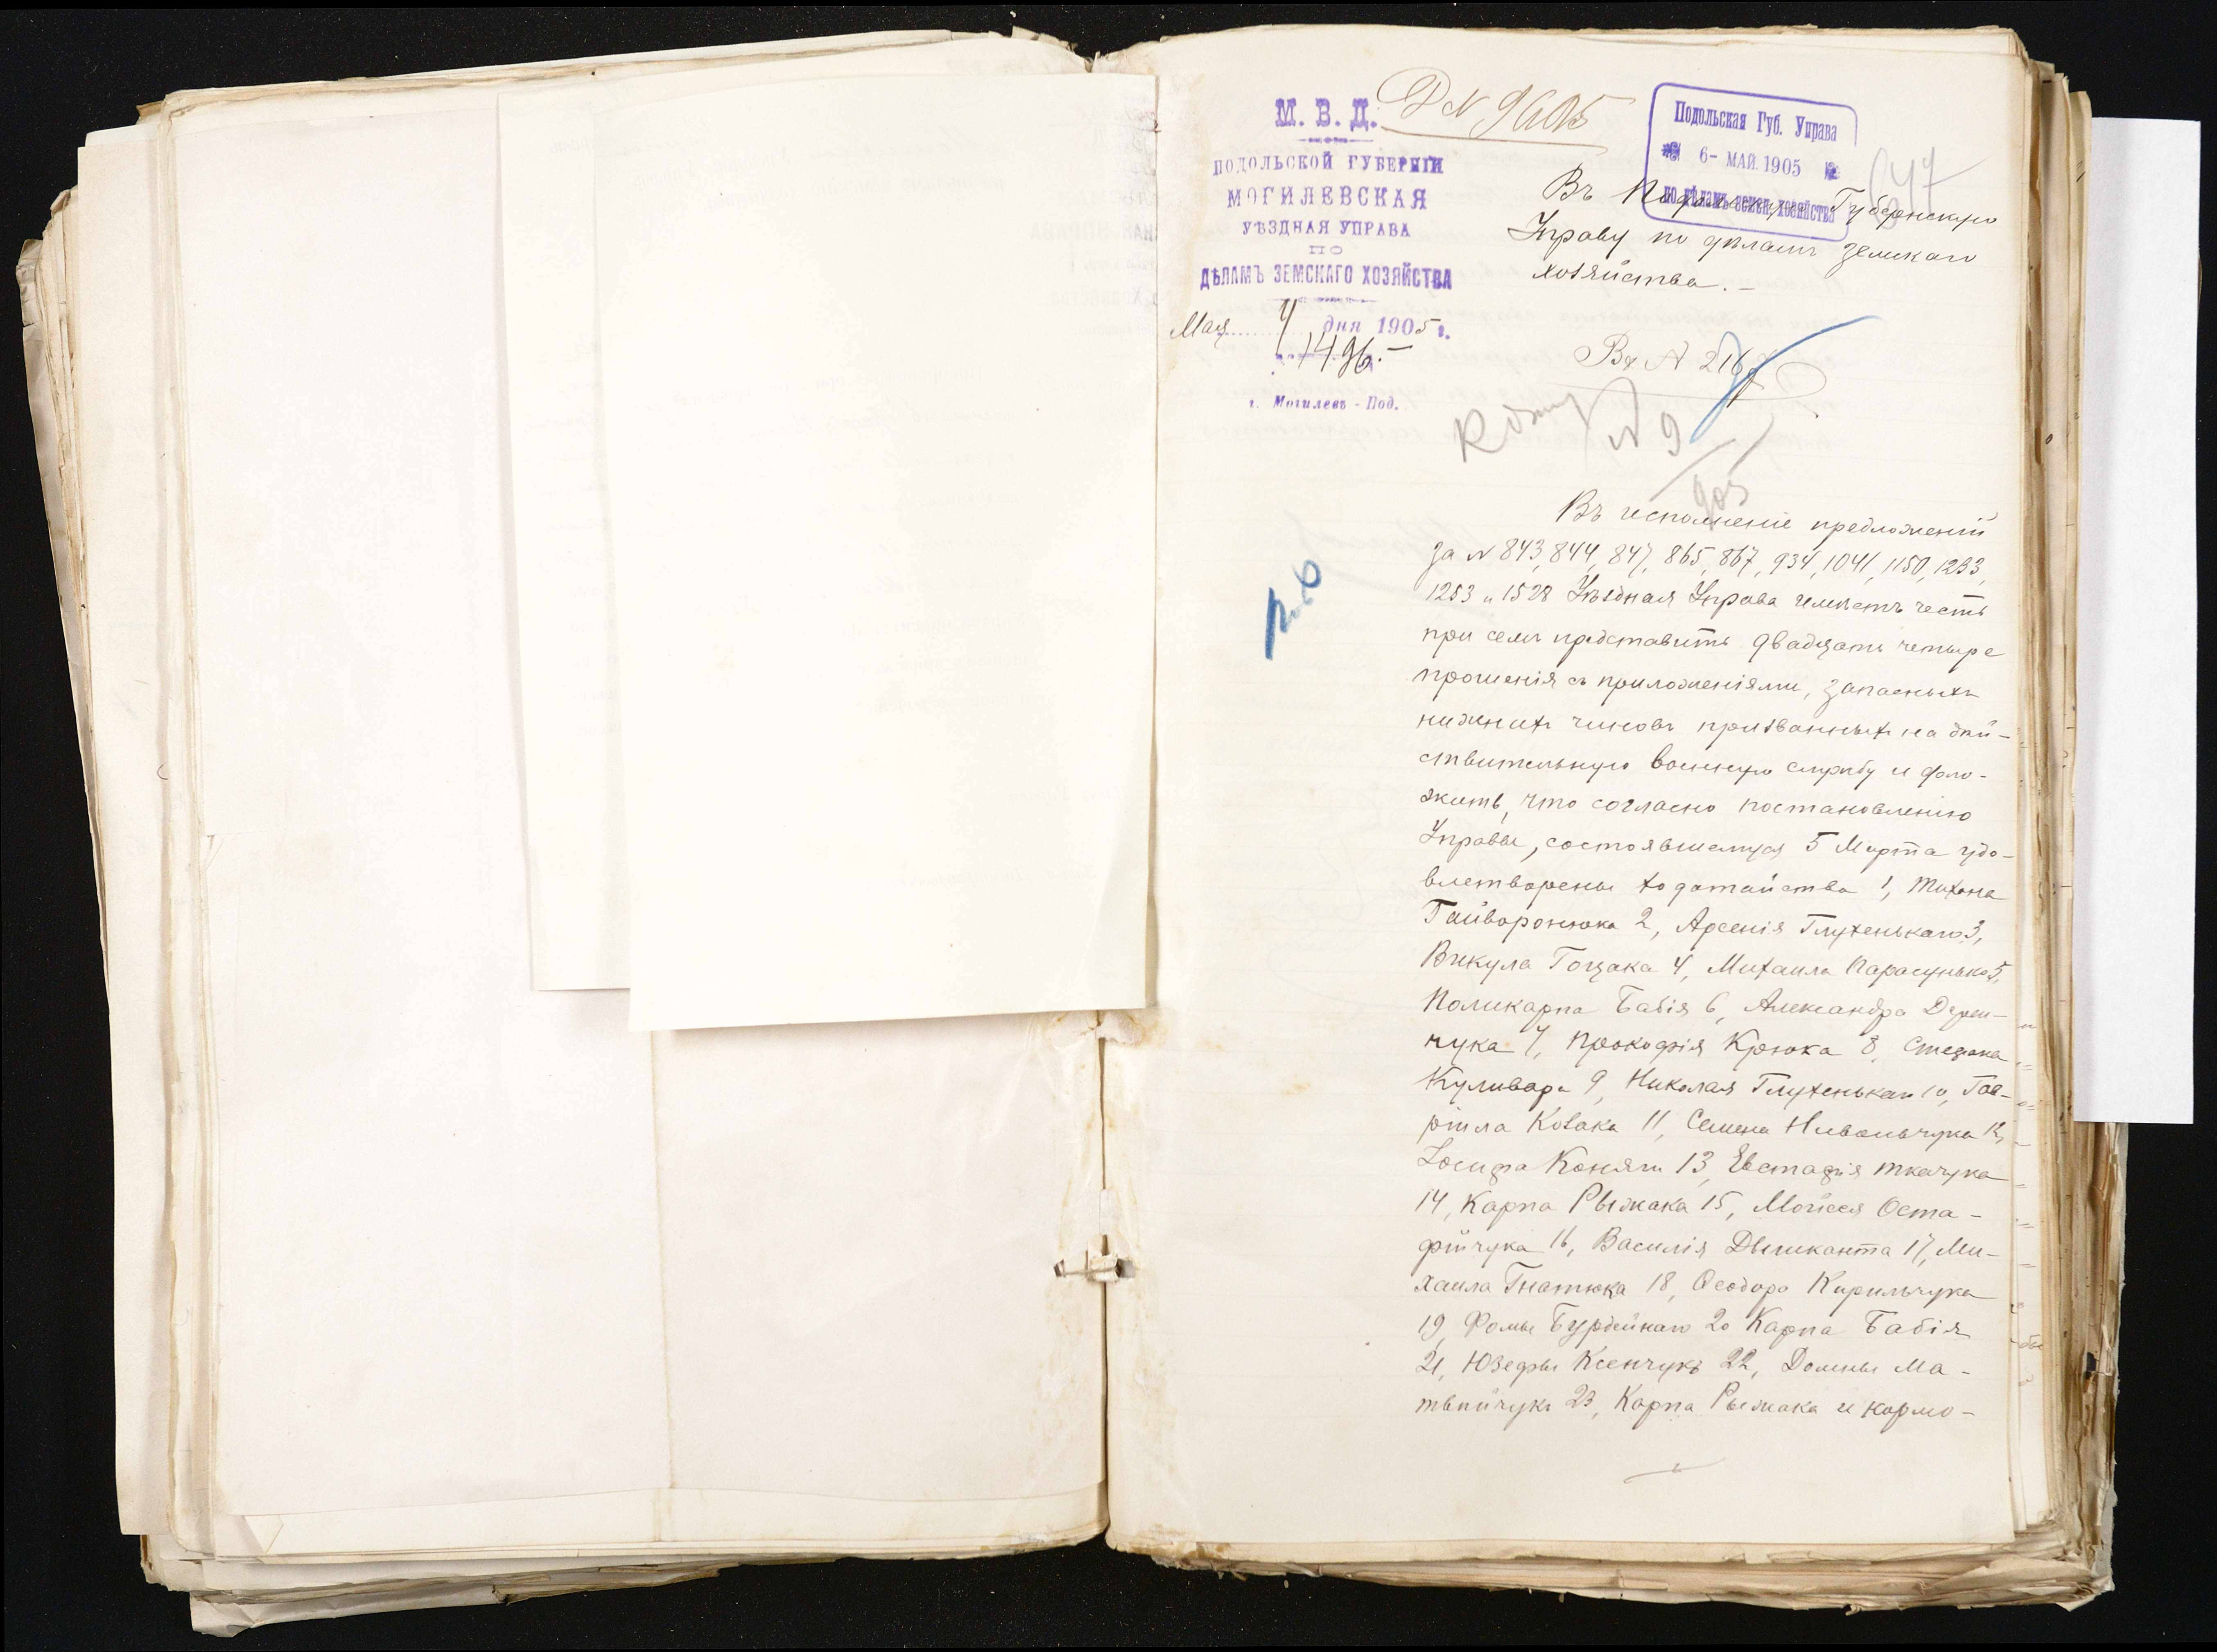 М. В. Д.
ПОДОЛЬСКОЙ ГУБЕРНІИ
МОГИЛЕВСКАЯ
УѢЗДНАЯ УПРАВА
ПО
ДѢЛАМЪ ЗЕМСКАГО ХОЗЯЙСТВА
Мая 4 дня 1905 г.
1496.—
г. Могилевъ - Под.
Подольская Губ. Управа
6- МАЙ. 1905
по дѣламъ земск. хозяйства
647
Въ Подольскую Губернскую
Управу по дѣламъ земскаго
хозяйства.—
Вх N 216
N 9
905
Въ исполненіе предложеній
за N 843, 844, 847, 865, 867, 934, 1041, 1150, 1233,
1253 и 1528 Уѣздная Управа имѣетъ честь
при семъ представить двадцать четыре
прошенія съ приложеніями, запасныхъ
нижнихъ чиновъ призванныхъ на дѣй-
ствительную военную службу и доло-
жить, что согласно постановленію
Управы, состоявшемуся 5 Марта удо-
влетворены ходатайства 1, Тихона
Гайворонюка 2, Арсенія Глухенькаго 3,
Викула Гоцака 4, Михаила Парасунько 5,
Поликарпа Бабія 6, Александра Дерен-
чука 7, Прокофія Крюка 8, Стефана
Куливара 9, Николая Глухенькаго 10, Гав-
ріила Козака 11, Семена Нивальчука 12,
Іосифа Коняги 13, Евстафія Ткачука
14, Карпа Рыжака 15, Мойсея Оста-
фійчука 16, Василія Дыиканта 17, Ми-
хаила Гнатюка 18, Ѳеодора Кирильчука
19, Фомы Бурдейнаго 20 Карпа Бабія
21, Юзефы Ксенчукъ 22, Домны Ма-
твѣйчукъ 23, Карпа Рыжака и кормо-